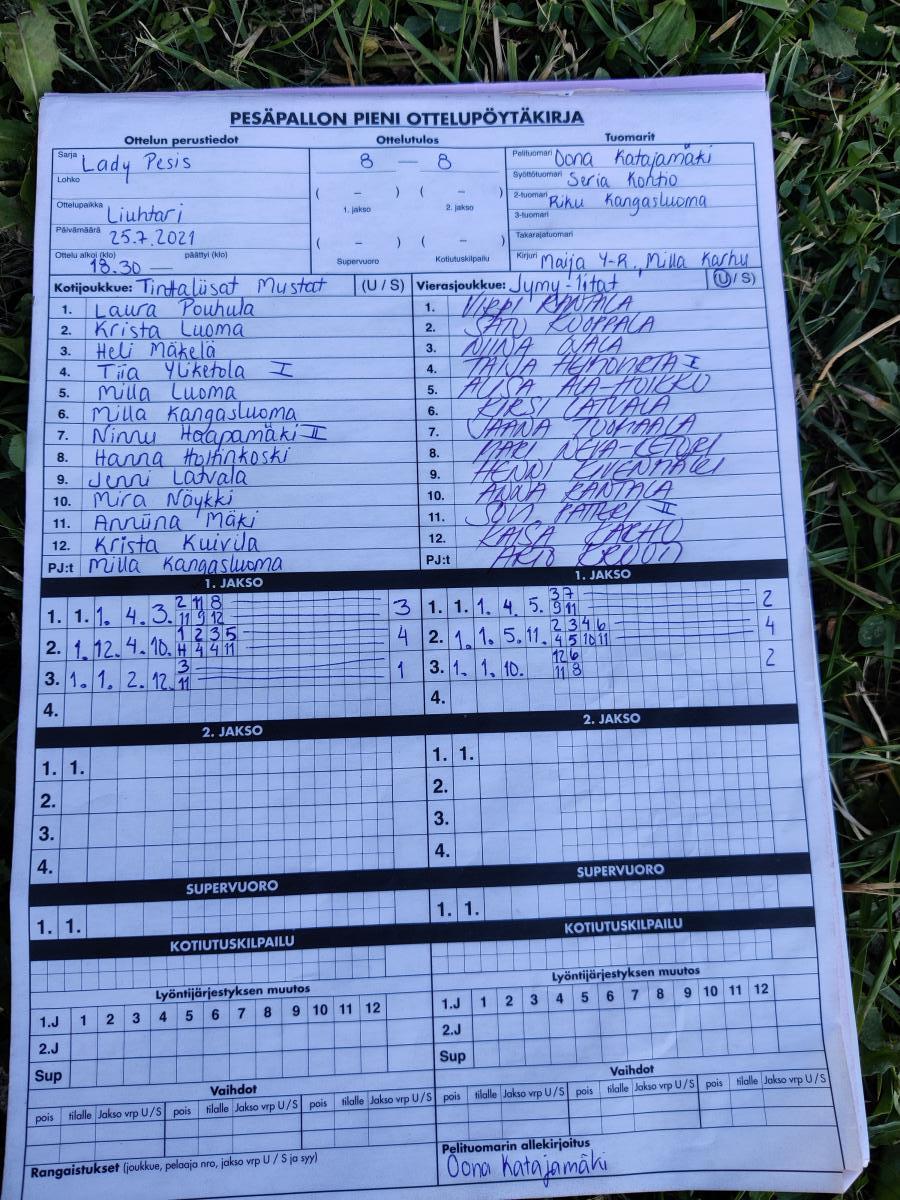 PESÄPALLON PIENI OTTELUPÖYTÄKIRJA
Ottelun perustiedot Ottelutulos Tuomarit
Sarja Lady Pesis 8 — 8 Pelituomari Oona Katajamäki
Lohko ( – ) ( – ) Syöttötuomari Seria Kontio
Ottelupaikka Liuhtari 1. jakso 2. jakso 2-tuomari Riku Kangasluoma
3-tuomari
Päivämäärä 25.7.2021 ( – ) ( – ) Takarajatuomari
Ottelu alkoi (klo) 18.30 — päättyi (klo) Supervuoro Kotiutuskilpailu Kirjuri Maija Y-R, Milla Karhu
Kotijoukkue: Tinttaliisat Mustat (U / S) Vierasjoukkue: Jymy-Iitat (U / S)
1. Laura Pouhula 1. VIRPI RANTALA
2. Krista Luoma 2. SATU KUOPPALA
3. Heli Mäkelä 3. NIINA OJALA
4. Tiia Yliketola I 4. TAIJA I
5. Milla Luoma 5. ALISA ALA-HUIKKU
6. Milla Kangasluoma 6. KIRSI LATVALA
7. Ninnu Haapamäki II 7. JAANA TUOMAALA
8. Hanna 8. MARI
9. Jenni Latvala 9. HENNI KIVENMÄKI
10. Mira Näykki 10. ANNA RANTALA
11. Anniina Mäki 11. II
12. Krista Kuivila 12. KAISA KARHU
PJ:t Milla Kangasluoma PJ:t
1. JAKSO 1. JAKSO
2 11 8 3 7
1. 1. 1. 4. 3. 11 9 12 3 1. 1. 1. 4. 5. 9 11 2
1 2 3 5 2 3 4 6
2. 1. 12. 4. 10. H 4 4 11 4 2. 1. 1. 5. 11. 4 5 10 11 4
3 12 6
3. 1. 1. 2. 12. 11 1 3. 1. 1. 10. 11 8 2
4. 4.
2. JAKSO 2. JAKSO
1. 1. 1. 1.
2. 2.
3. 3.
4. 4.
SUPERVUORO SUPERVUORO
1. 1. 1. 1.
KOTIUTUSKILPAILU KOTIUTUSKILPAILU
Lyöntijärjestyksen muutos Lyöntijärjestyksen muutos
1.J 1 2 3 4 5 6 7 8 9 10 11 12 1.J 1 2 3 4 5 6 7 8 9 10 11 12
2.J 2.J
Sup Sup
Vaihdot Vaihdot
pois tilalle Jakso vrp U / S pois tilalle Jakso vrp U / S pois tilalle Jakso vrp U / S pois tilalle Jakso vrp U / S pois tilalle Jakso vrp U / S pois tilalle Jakso vrp U / S
Rangaistukset (joukkue, pelaaja nro, jakso vrp U / S ja syy) Pelituomarin allekirjoitus
Oona Katajamäki